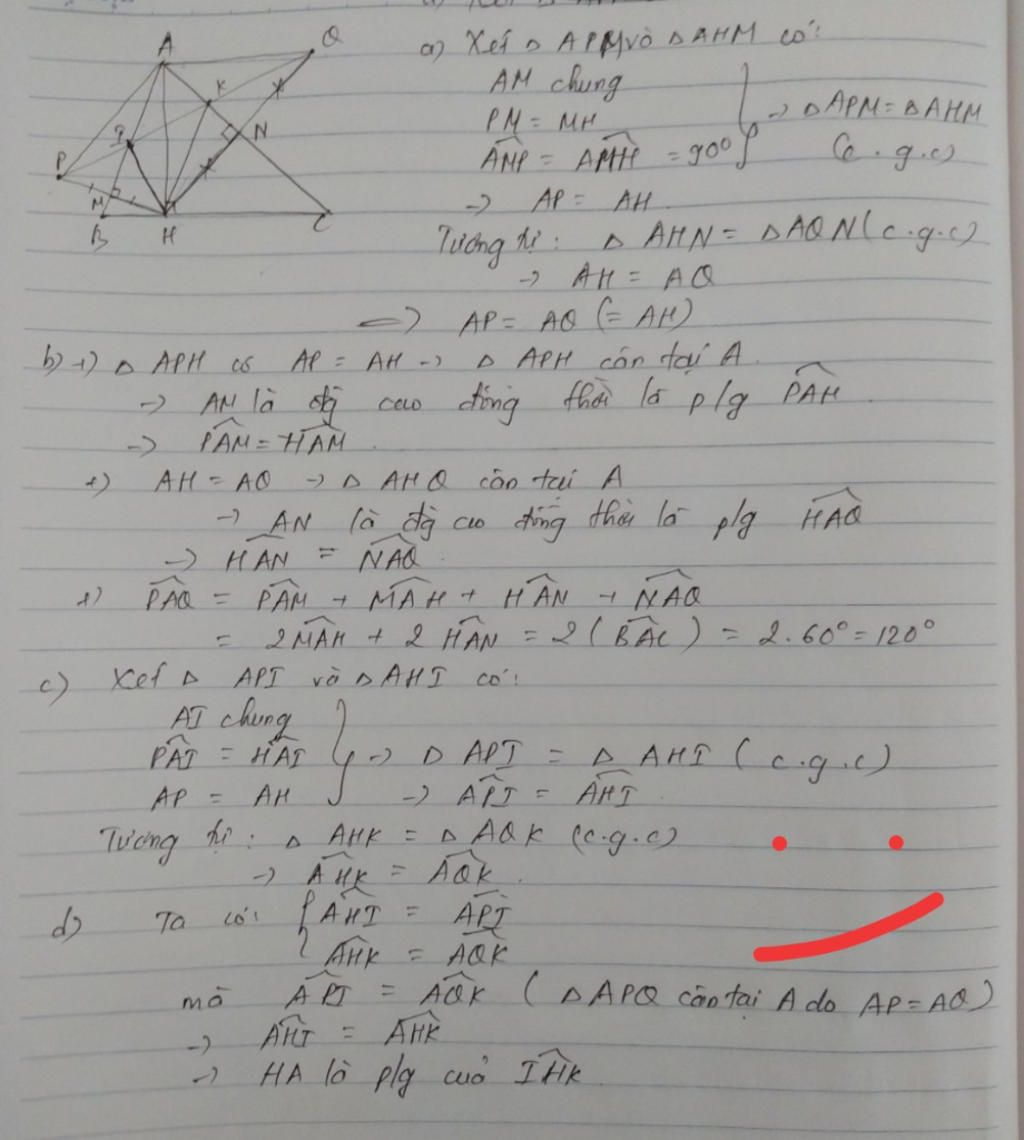 A
Q
K
I
N
P
M
B
H
C
a) Xét Δ APM và Δ AHM có:
AM chung
PM = MH
AMP = AMH = 90°
→ Δ APM = Δ AHM
(c.g.c)
→ AP = AH
Tương tự: Δ AHN = Δ AQN (c.g.c)
→ AH = AQ
⇒ AP = AQ (= AH)
b) +) Δ APH có AP = AH → Δ APH cân tại A
→ AM là đg cao đồng thời là p/g PAH
→ PAM = HAM
+) AH = AQ → Δ AHQ cân tại A
→ AN là đg cao đồng thời là p/g HAQ
→ HAN = NAQ
+) PAQ = PAM + MAH + HAN + NAQ
= 2MAH + 2HAN = 2(BAC) = 2.60° = 120°
c) Xét Δ API và Δ AHI có:
AI chung
PAI = HAI
AP = AH
→ Δ API = Δ AHI (c.g.c)
→ API = AHI
Tương tự: Δ AHK = Δ AQK (c.g.c)
→ AHK = AQK
d) Ta có: { AHI = API
AHK = AQK
mà API = AQK (Δ APQ cân tại A do AP = AQ)
→ AHI = AHK
→ HA là p/g của IHK